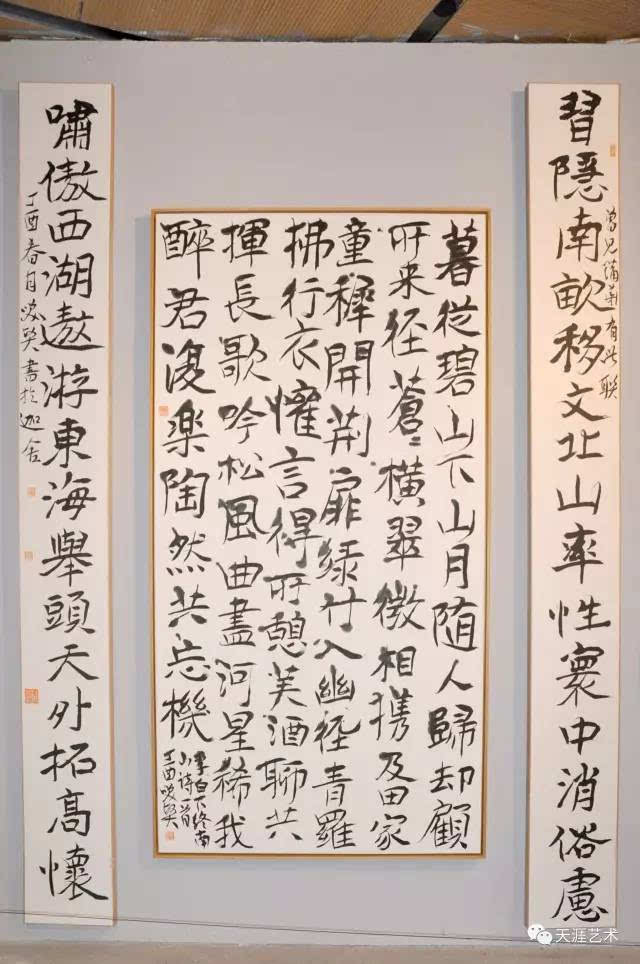 習隱南畝移文北山率性寰中消俗慮
曾见蒲華有此聯
暮從碧山下山月随人歸却顧
所来径蒼〻横翠微相携及田家
童稚開荆扉緑竹入幽径青羅
拂行衣懽言得所憩美酒聊共
揮長歌吟松風曲盡河星稀我
醉君復楽陶然共忘機
李白下终南
小诗一首
丁酉
嘯傲西湖遨游東海舉頭天外拓高懷
丁酉春月 書於迦舍
天涯艺术